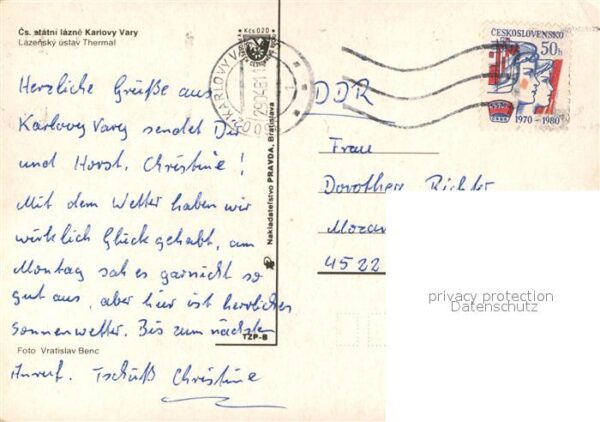 Čs. státní lázně Karlovy Vary
Lázeňský ústav Thermal
Herzliche Grüße aus
Karlovy Vary sendet Dir
und Horst, Christine!
Mit dem Wetter haben wir
wirklich Glück gehabt, am
Montag sah es garnicht so
gut aus, aber hier ist herrliches
Sonnenwetter. Bis zum nächsten
Foto Vratislav Benc
Anruf. Tschüß Christine
Kčs 0,20
Nakladateľstvo PRAVDA, Bratislava
TZP-B
KARLOVY VARY
1
ČESKOSLOVENSKO
50h
SSM
1970 - 1980
DDR
Frau
Dorothea Richter
Mozar
4522
privacy protection
Datenschutz